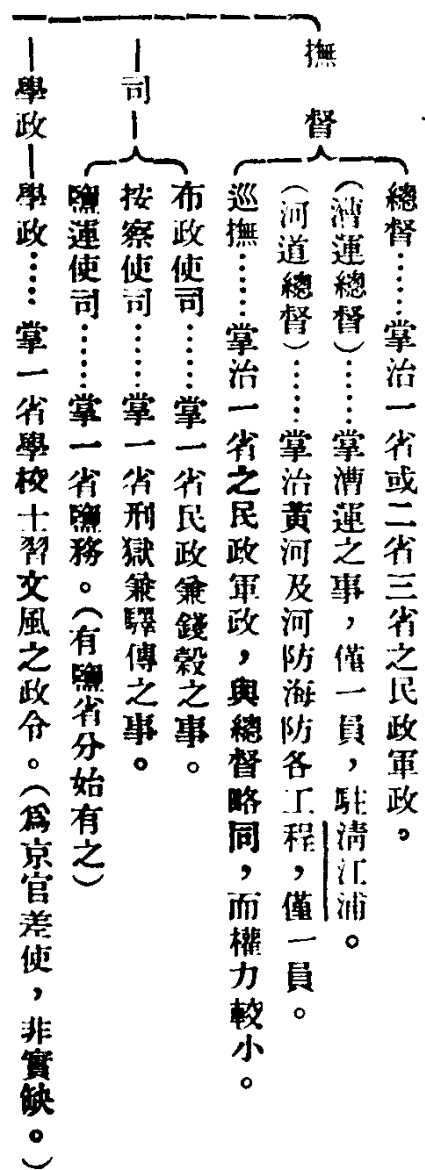 督撫
總督……掌治一省或二省三省之民政軍政。
（漕運總督）……掌漕運之事，僅一員，駐清江浦。
（河道總督）……掌治黃河及河防海防各工程，僅一員。
巡撫……掌治一省之民政軍政，與總督略同，而權力較小。
司
布政使司……掌一省民政兼錢穀之事。
按察使司……掌一省刑獄兼驛傳之事。
鹽運使司……掌一省鹽務。（有鹽省分始有之）
學政
學政……掌一省學校士習文風之政令。（爲京官差使，非實缺。）